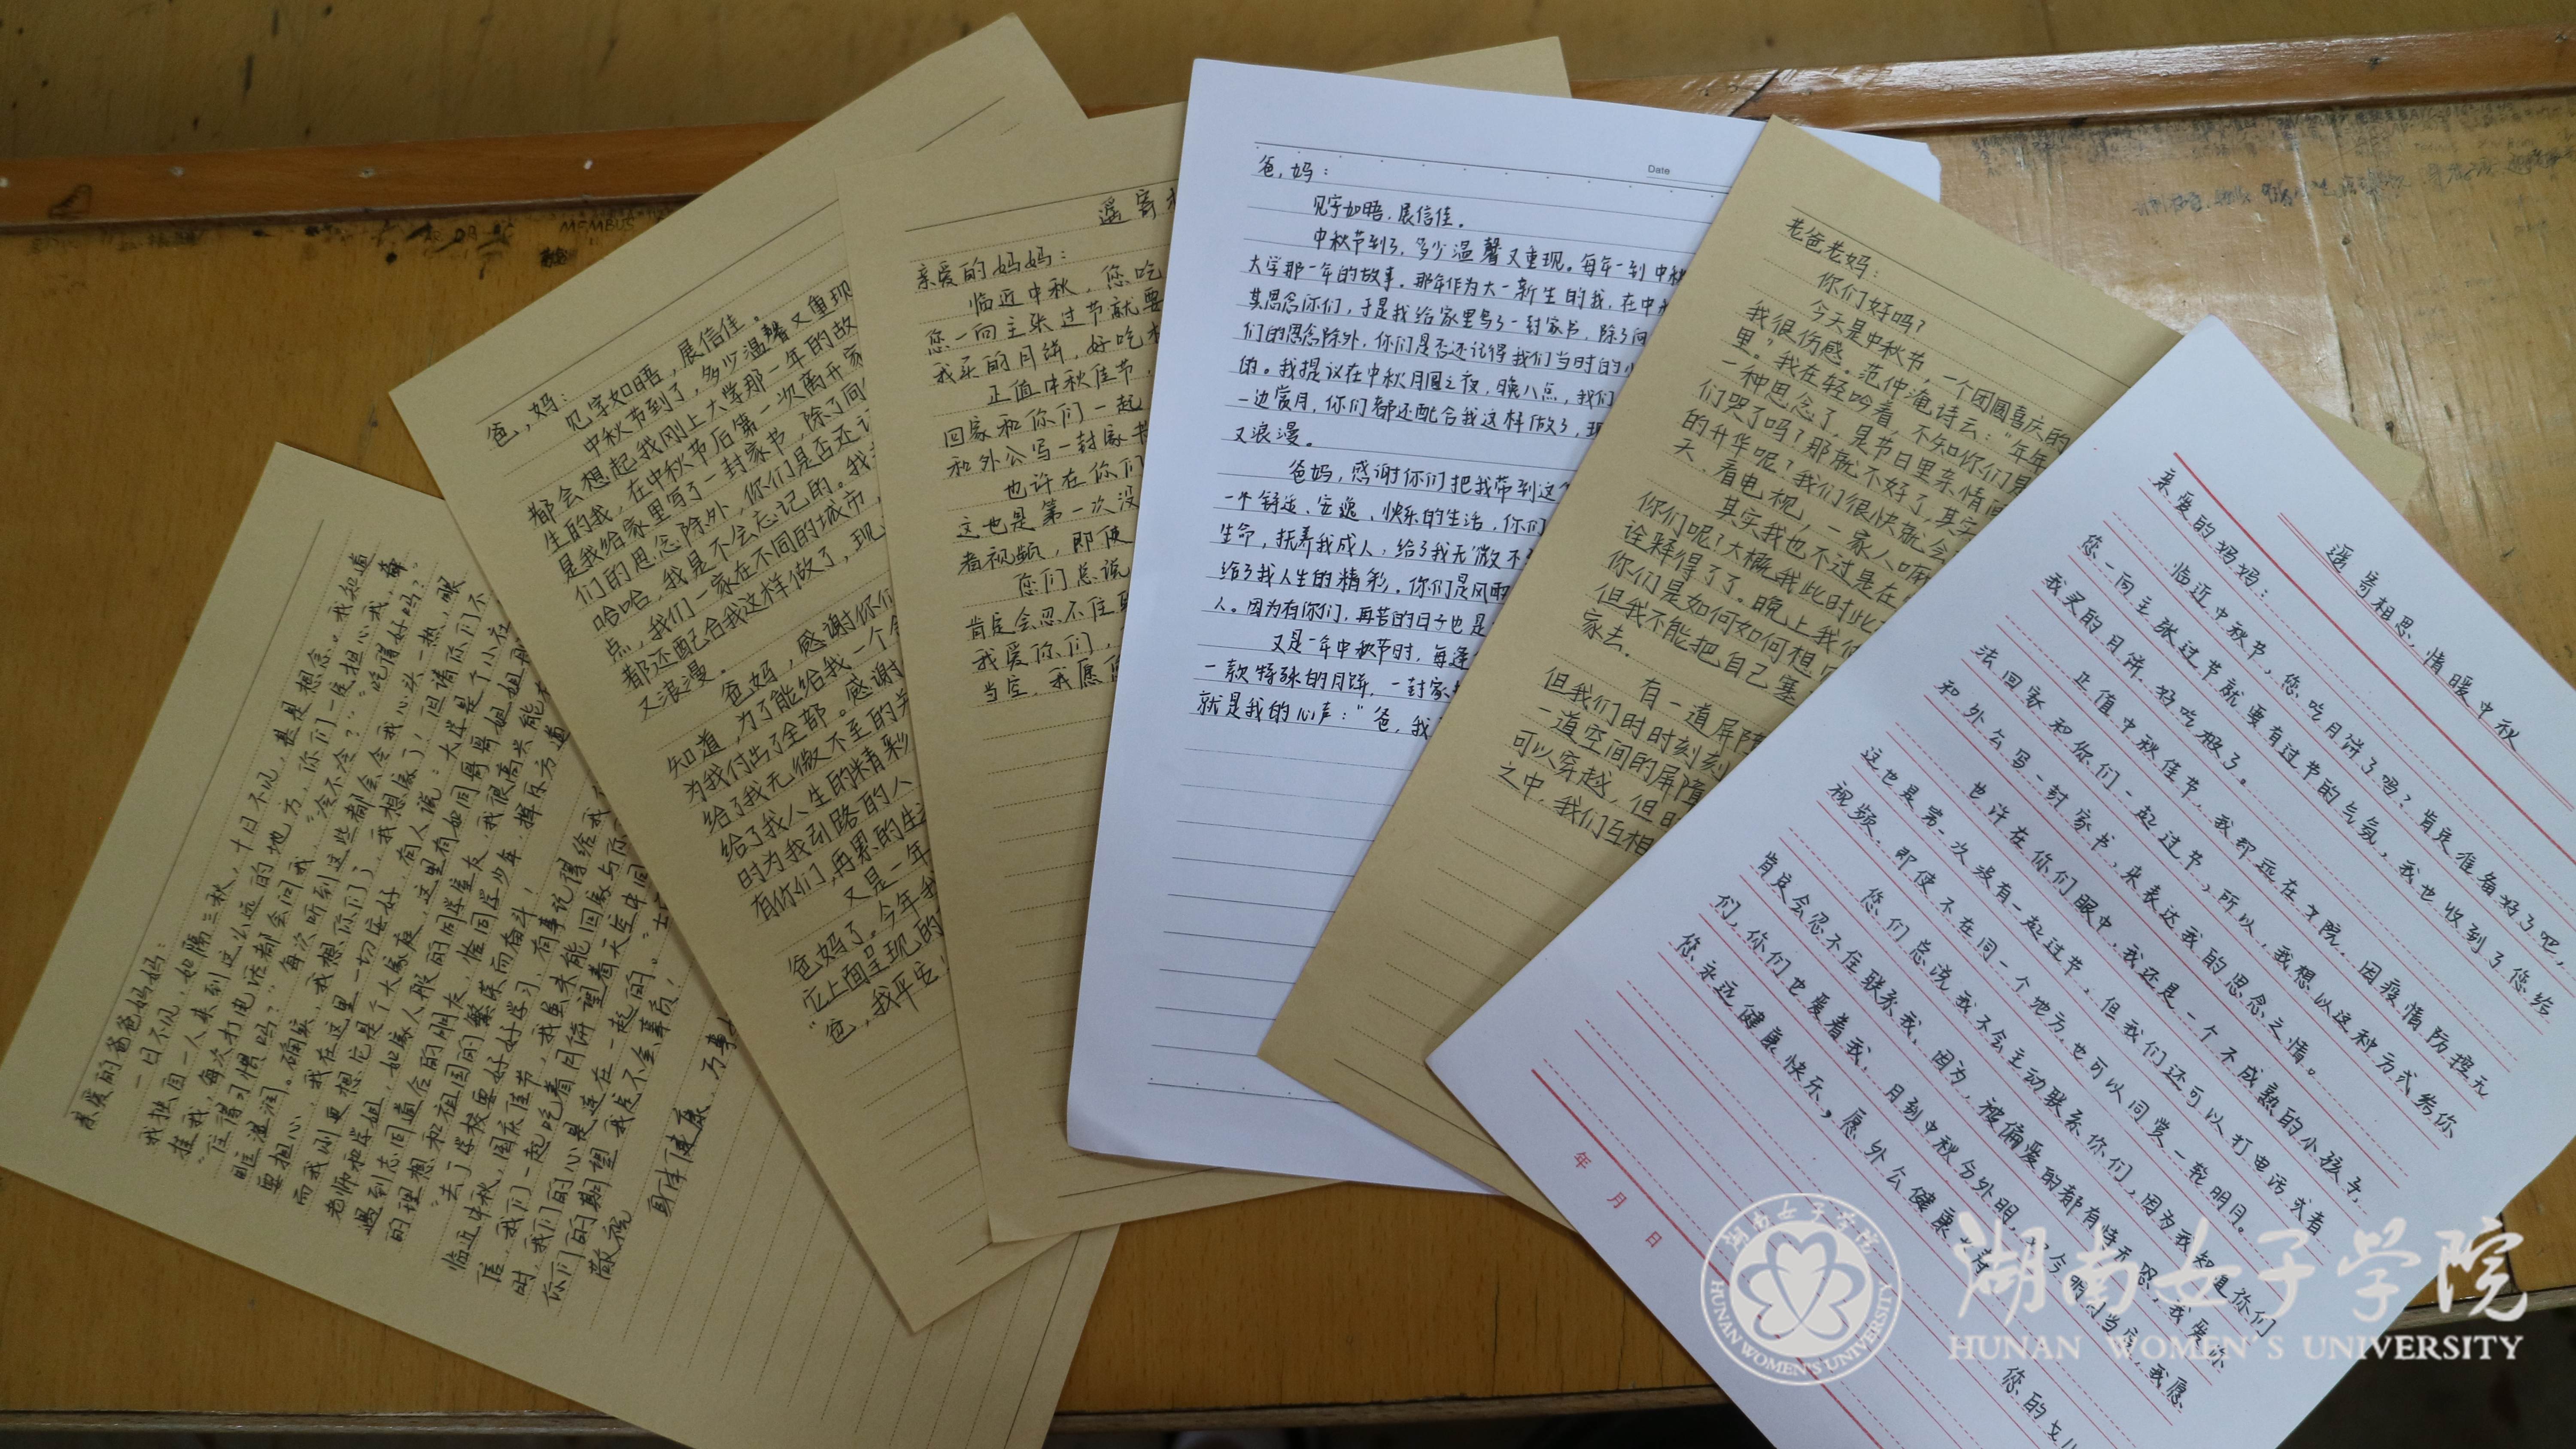 亲爱的爸爸妈妈：
一日不见，如隔三秋，十日不见，甚是想念。我知道
我独自一人来到这么远的地方，你们一定担心我，每
“住得习惯吗？”“冷不冷？”“吃得好吗？”
眶湿润。确实，我想你们了，我想家了，但请你们不
要担心，我在这里一切安好，有人说：大学是个小社
而我则更想它是个大家庭，这里有如同哥哥姐姐般
老师和学姐，如家人般的同学室友，我很高兴能
遇到志同道合的朋友，恰同学少年，挥斥方遒
的理想和祖国的繁荣而奋斗！
“去了学校要好好学习，有事记得给我
临近中秋，国庆佳节，我虽未能回家与你
信，我们一起吃着月饼望着天空中同
时，我们的心是连在一起的。
你们的期望，我定不会辜负！
敬祝
身体健康，万事
爸，妈：
见字如晤，展信佳。
中秋节到了，多少温馨又重现
都会想起我刚上大学那一年的故
生的我，在中秋节后第一次离开家
是我给家里写了一封家书，除了问
们的思念除外，你们是否还记
哈哈，我是不会忘记的。我
点，我们一家在不同的城市，
都还配合我这样做了，现
又浪漫。
爸妈，感谢你们
知道，为了能给我一个
为我付出了全部。感谢
给了我无微不至的关
给了我人生的精彩
时为我引路的人
有你们，再累的生
又是一年
爸妈了。今年我
它上面呈现的
“爸，我平安
遥寄
亲爱的妈妈：
临近中秋，您吃
您一向主张过节就要
我买的月饼，好吃
正值中秋佳节，
回家和你们一起
和外公写一封家书
也许在你们
这也是第一次没
者视频，即使
您们总说
肯定会忍不住
我爱你们，
当空，我愿
Date
爸，妈：
见字如晤，展信佳。
中秋节到了，多少温馨又重现。每年一到中秋
大学那一年的故事。那年作为大一新生的我，在中
其思念你们，于是我给家里写了一封家书，除了问
们的思念除外，你们是否还记得我们当时的
的。我提议在中秋月圆之夜，晚八点，我们
一边赏月，你们都还配合我这样做了，现
又浪漫。
爸妈，感谢你们把我带到这个
一个舒适、安逸、快乐的生活，你们
生命，抚养我成人；给了我无微不
给了我人生的精彩。你们是风雨
人。因为有你们，再苦的日子也是
又是一年中秋节时，每逢
一款特殊的月饼，一封家
就是我的心声：“爸，我
老爸老妈：
你们好吗？
今天是中秋节，一个团圆喜庆的
我很伤感。范仲淹诗云：“年年
里。”我在轻吟着，不知你们是
一种思念了，是节日里亲情
们哭了吗？那就不好了，其实
的升华呢？我们很快就会
天，看电视，一家人
其实我也不过是在
你们呢？大概我此时此
诠释得了了。晚上我
你们是如何如何想
但我不能把自己塞
家去。
有一道屏障
但我们时时刻刻
一道空间的屏障
可以穿越，但
之中，我们互相
遥寄相思，情暖中秋
亲爱的妈妈：
临近中秋节，您吃月饼了吗？肯定准备好了吧，
您一向主张过节就要有过节的气氛，我也收到了您给
我买的月饼，好吃极了。
正值中秋佳节，我却远在女院，因疫情防控无
法回家和你们一起过节，所以，我想以这种方式给你
和外公写一封家书，来表达我的思念之情。
也许在你们眼中，我还是一个不成熟的小孩子，
这也是第一次没有一起过节，但我们还可以打电话或者
视频，即使不在同一个地方，也可以同赏一轮明月。
您们总说我不会主动联系你们，因为我知道你们
肯定会忍不住联系我，因为，被偏爱的都有恃无恐，我爱你
们，你们也爱着我，月到中秋分外明，今明月当空，我愿
您永远健康快乐，愿外公健康
您的女儿
年 月 日
湖南女子学院
HUNAN WOMEN'S UNIVERSITY
湖南女子学院
HUNAN WOMEN'S UNIVERSITY